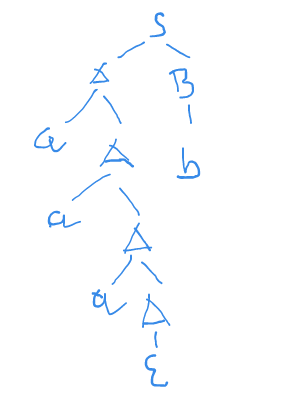 S
A B
a A b
a A
a A
ε